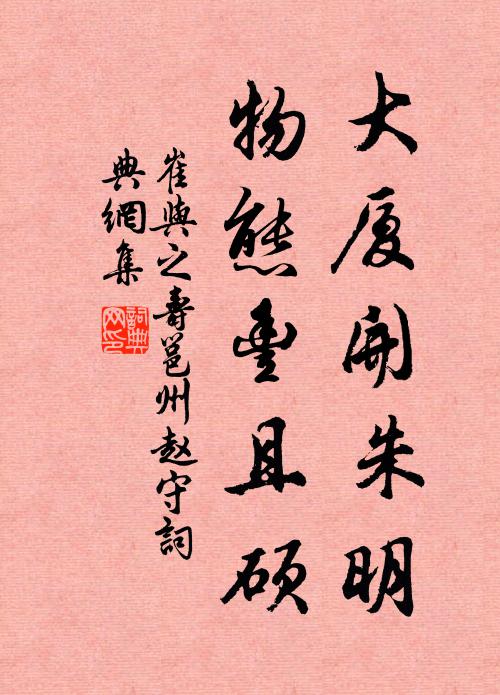 大厦開朱明
物態豊且碩
崔與之壽邕州赵守詞
典網集
詞典
网印